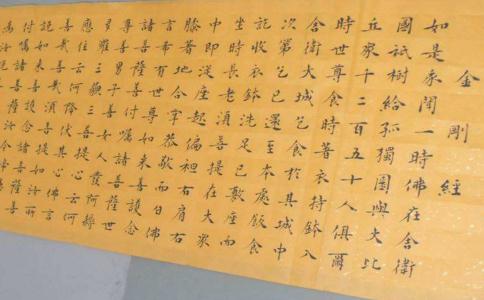 金剛經
如是我聞一時佛在舍衛
國祇樹給孤獨園與大比
丘眾千二百五十人俱爾
時世尊食時著衣持鉢入
舍衛大城乞食於其城中
次第乞已還至本處飯食
訖收衣鉢洗足已敷座而
坐時長老須菩提在大眾
中即從座起偏袒右肩右
膝著地合掌恭敬而白佛
言希有世尊如來善護念
諸菩薩善付囑諸菩薩世
尊善男子善女人發阿耨
多羅三藐三菩提心云何
應住云何降伏其心佛言
善哉善哉須菩提如汝所
說如來善護念諸菩薩善
付囑諸菩薩汝今
為汝